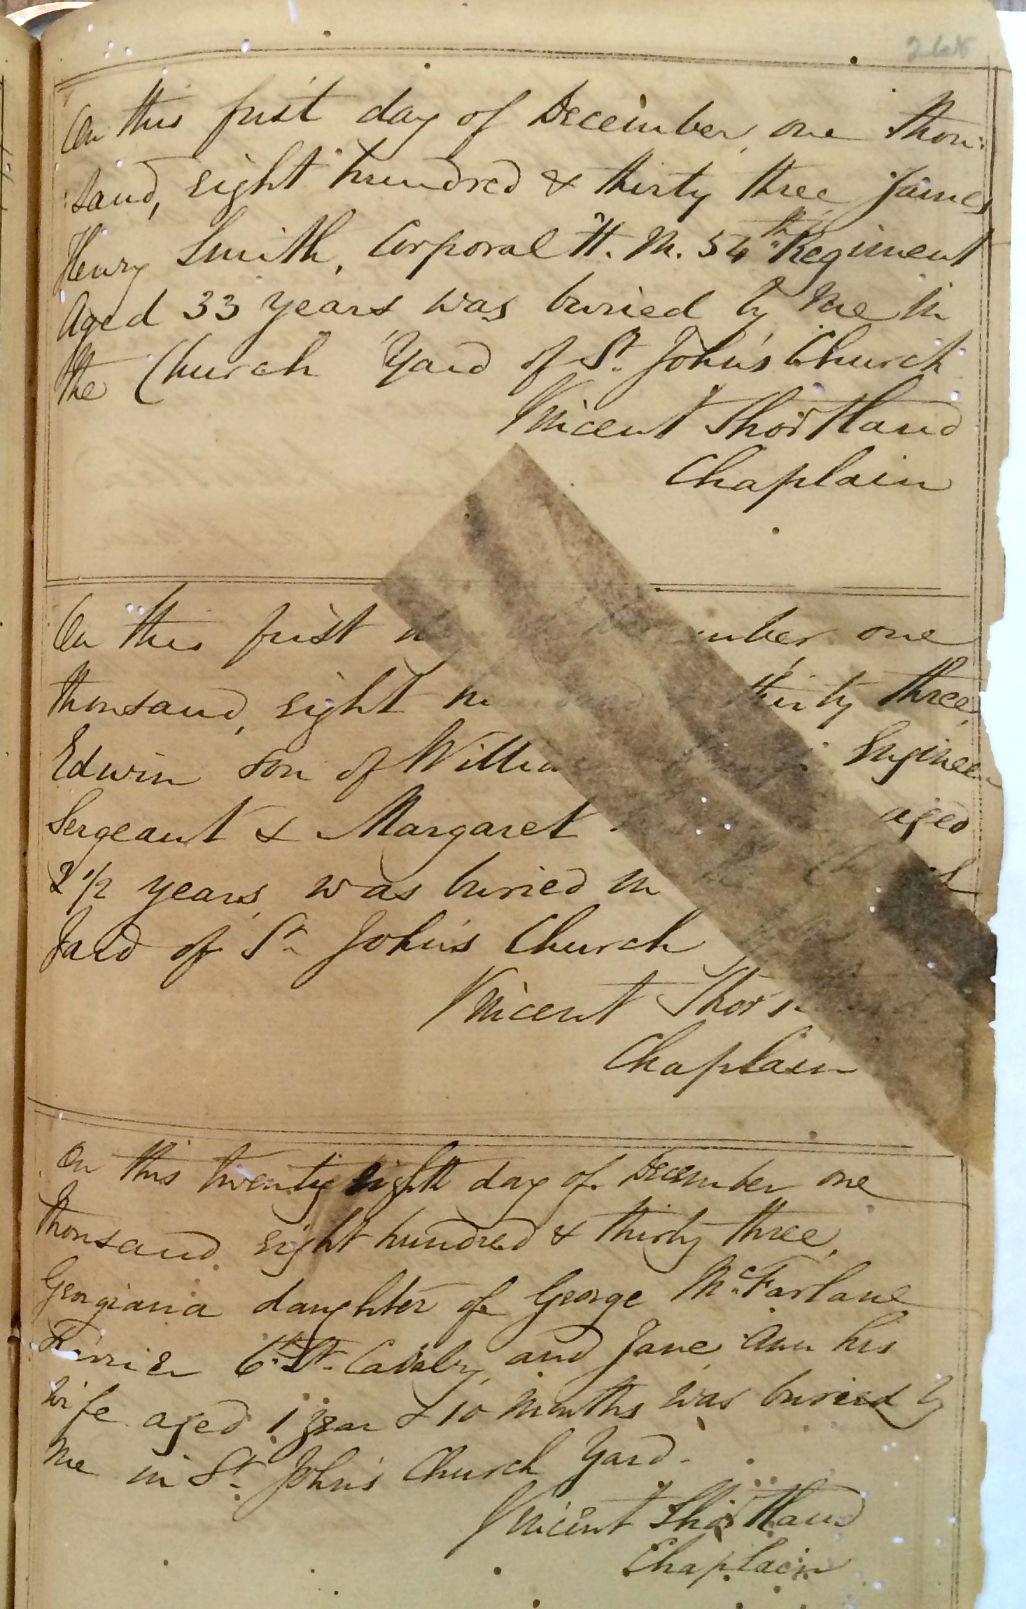 268
On this first day of December, one Thou:
:sand, eight hundred & thirty three, James
Henry Smith, Corporal H. M. 54th Regiment
Aged 33 years was buried by me in
the Church Yard of St. John's Church
Vincent Shortland
Chaplain
On this first one
thousand, eight thirty three,
Edwin son of Engineer
Sergeant & Margaret aged
2 1/2 years, was buried in
Yard of St. John's Church
Vincent
Chaplain
On this twenty eighth day of December one
thousand eight hundred & thirty three,
Georgiana daughter of George McFarlane
Farrier 6th Lt. Cavalry, and Jane Ann his
wife aged 1 year & 10 months was buried by
me in St. John's Church Yard.
Vincent Shortland
Chaplain